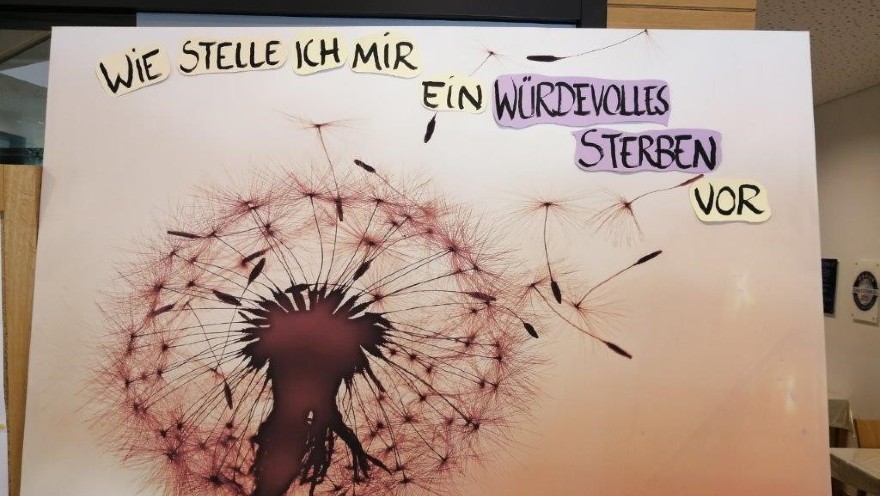 WIE STELLE ICH MIR
EIN WÜRDEVOLLES
STERBEN
VOR